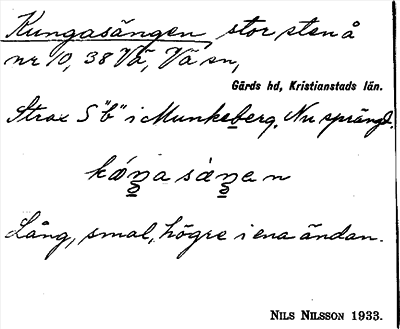 Kungasängen, stor sten å
nr 10, 38 Vä, Vä sn,
Gärds hd, Kristianstads län.
Strax S "b" i Munkeberg. Nu sprängd.
Lång, smal, högre i ena ändan.
NILS NILSSON 1933.